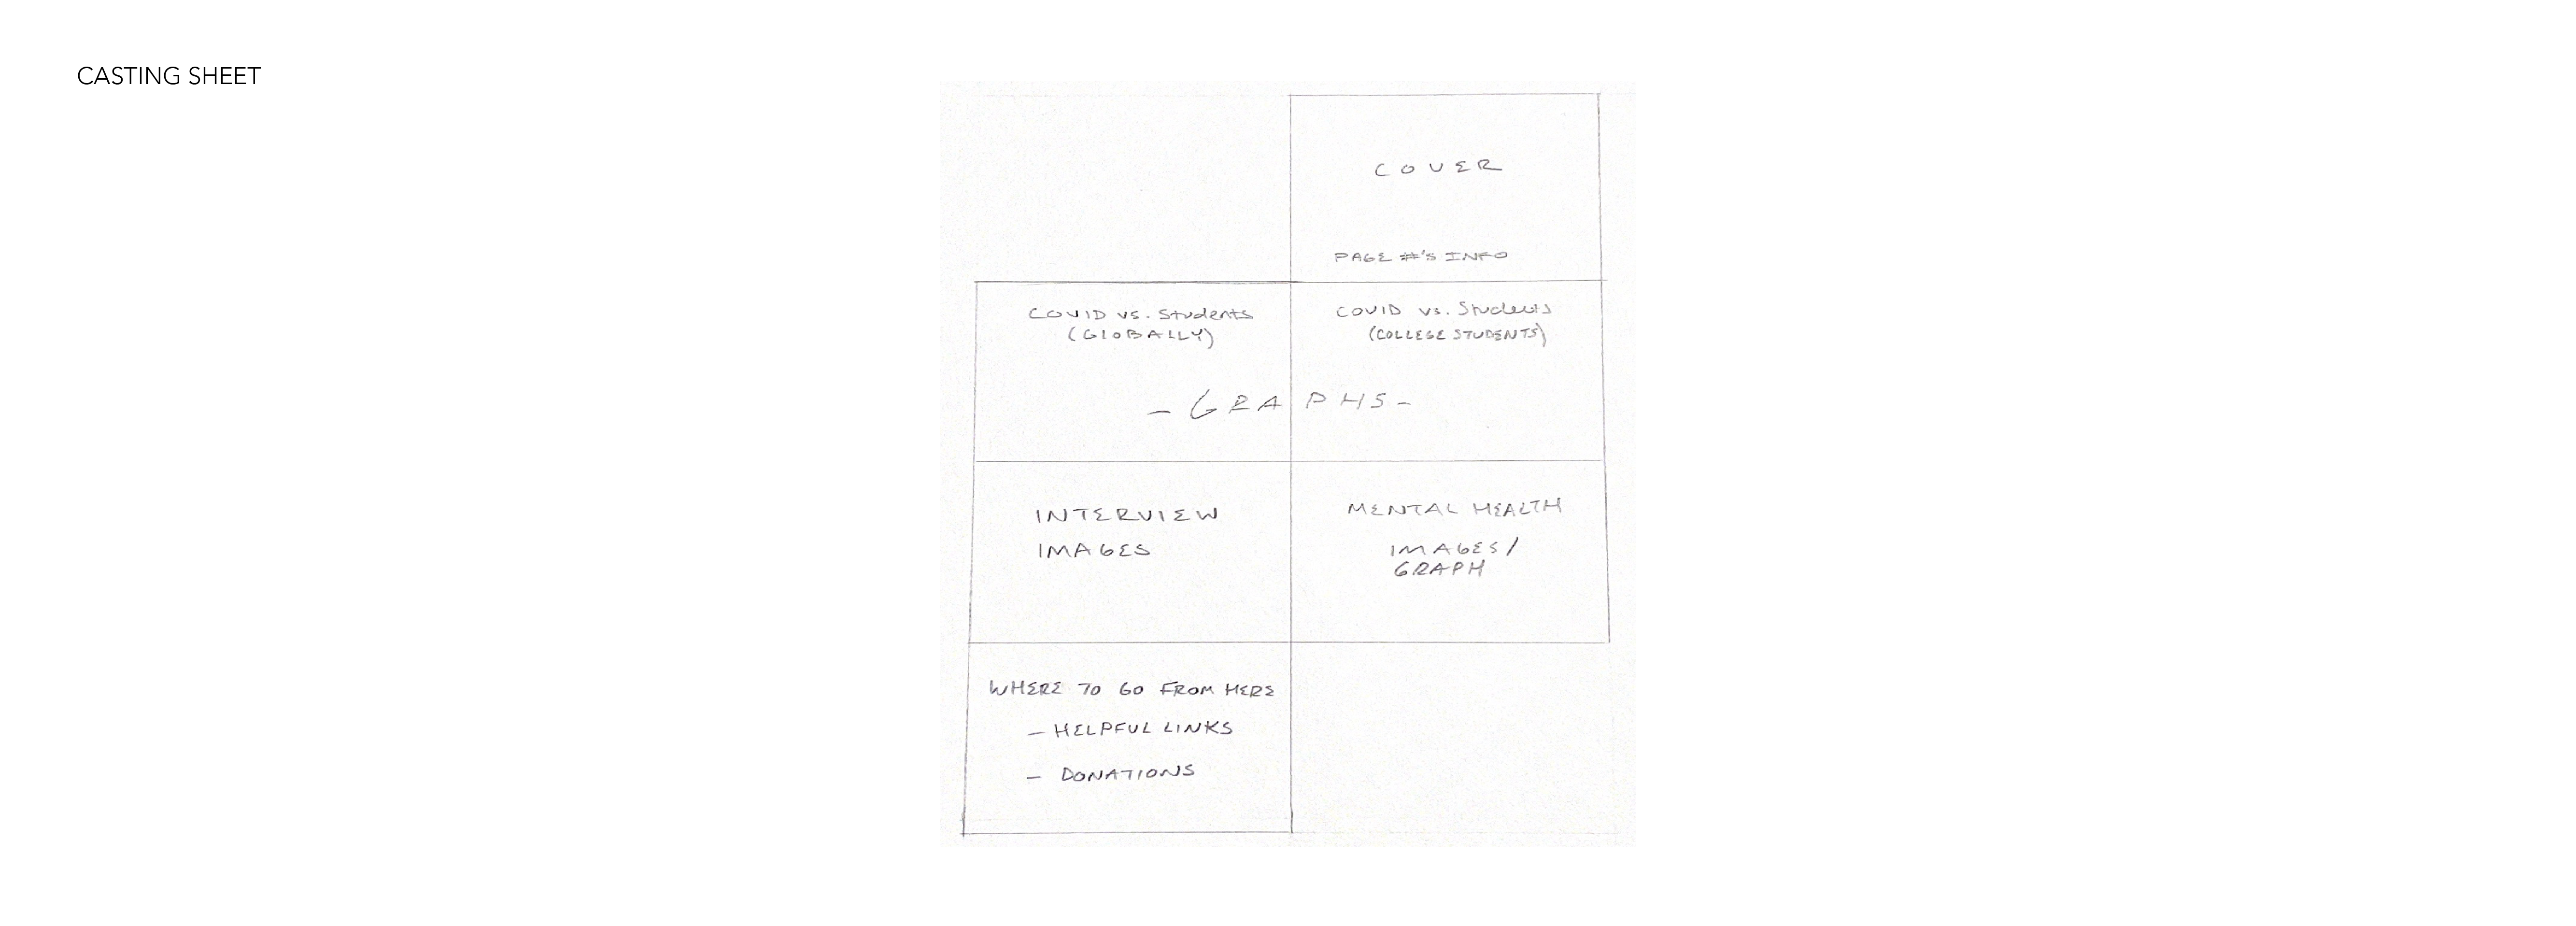 CASTING SHEET
COVER
PAGE #'S INFO
COVID vs. Students
(GLOBALLY)
COVID vs. Students
(COLLEGE STUDENTS)
- GRAPHS -
INTERVIEW
IMAGES
MENTAL HEALTH
IMAGES/
GRAPH
WHERE TO GO FROM HERE
- HELPFUL LINKS
- DONATIONS